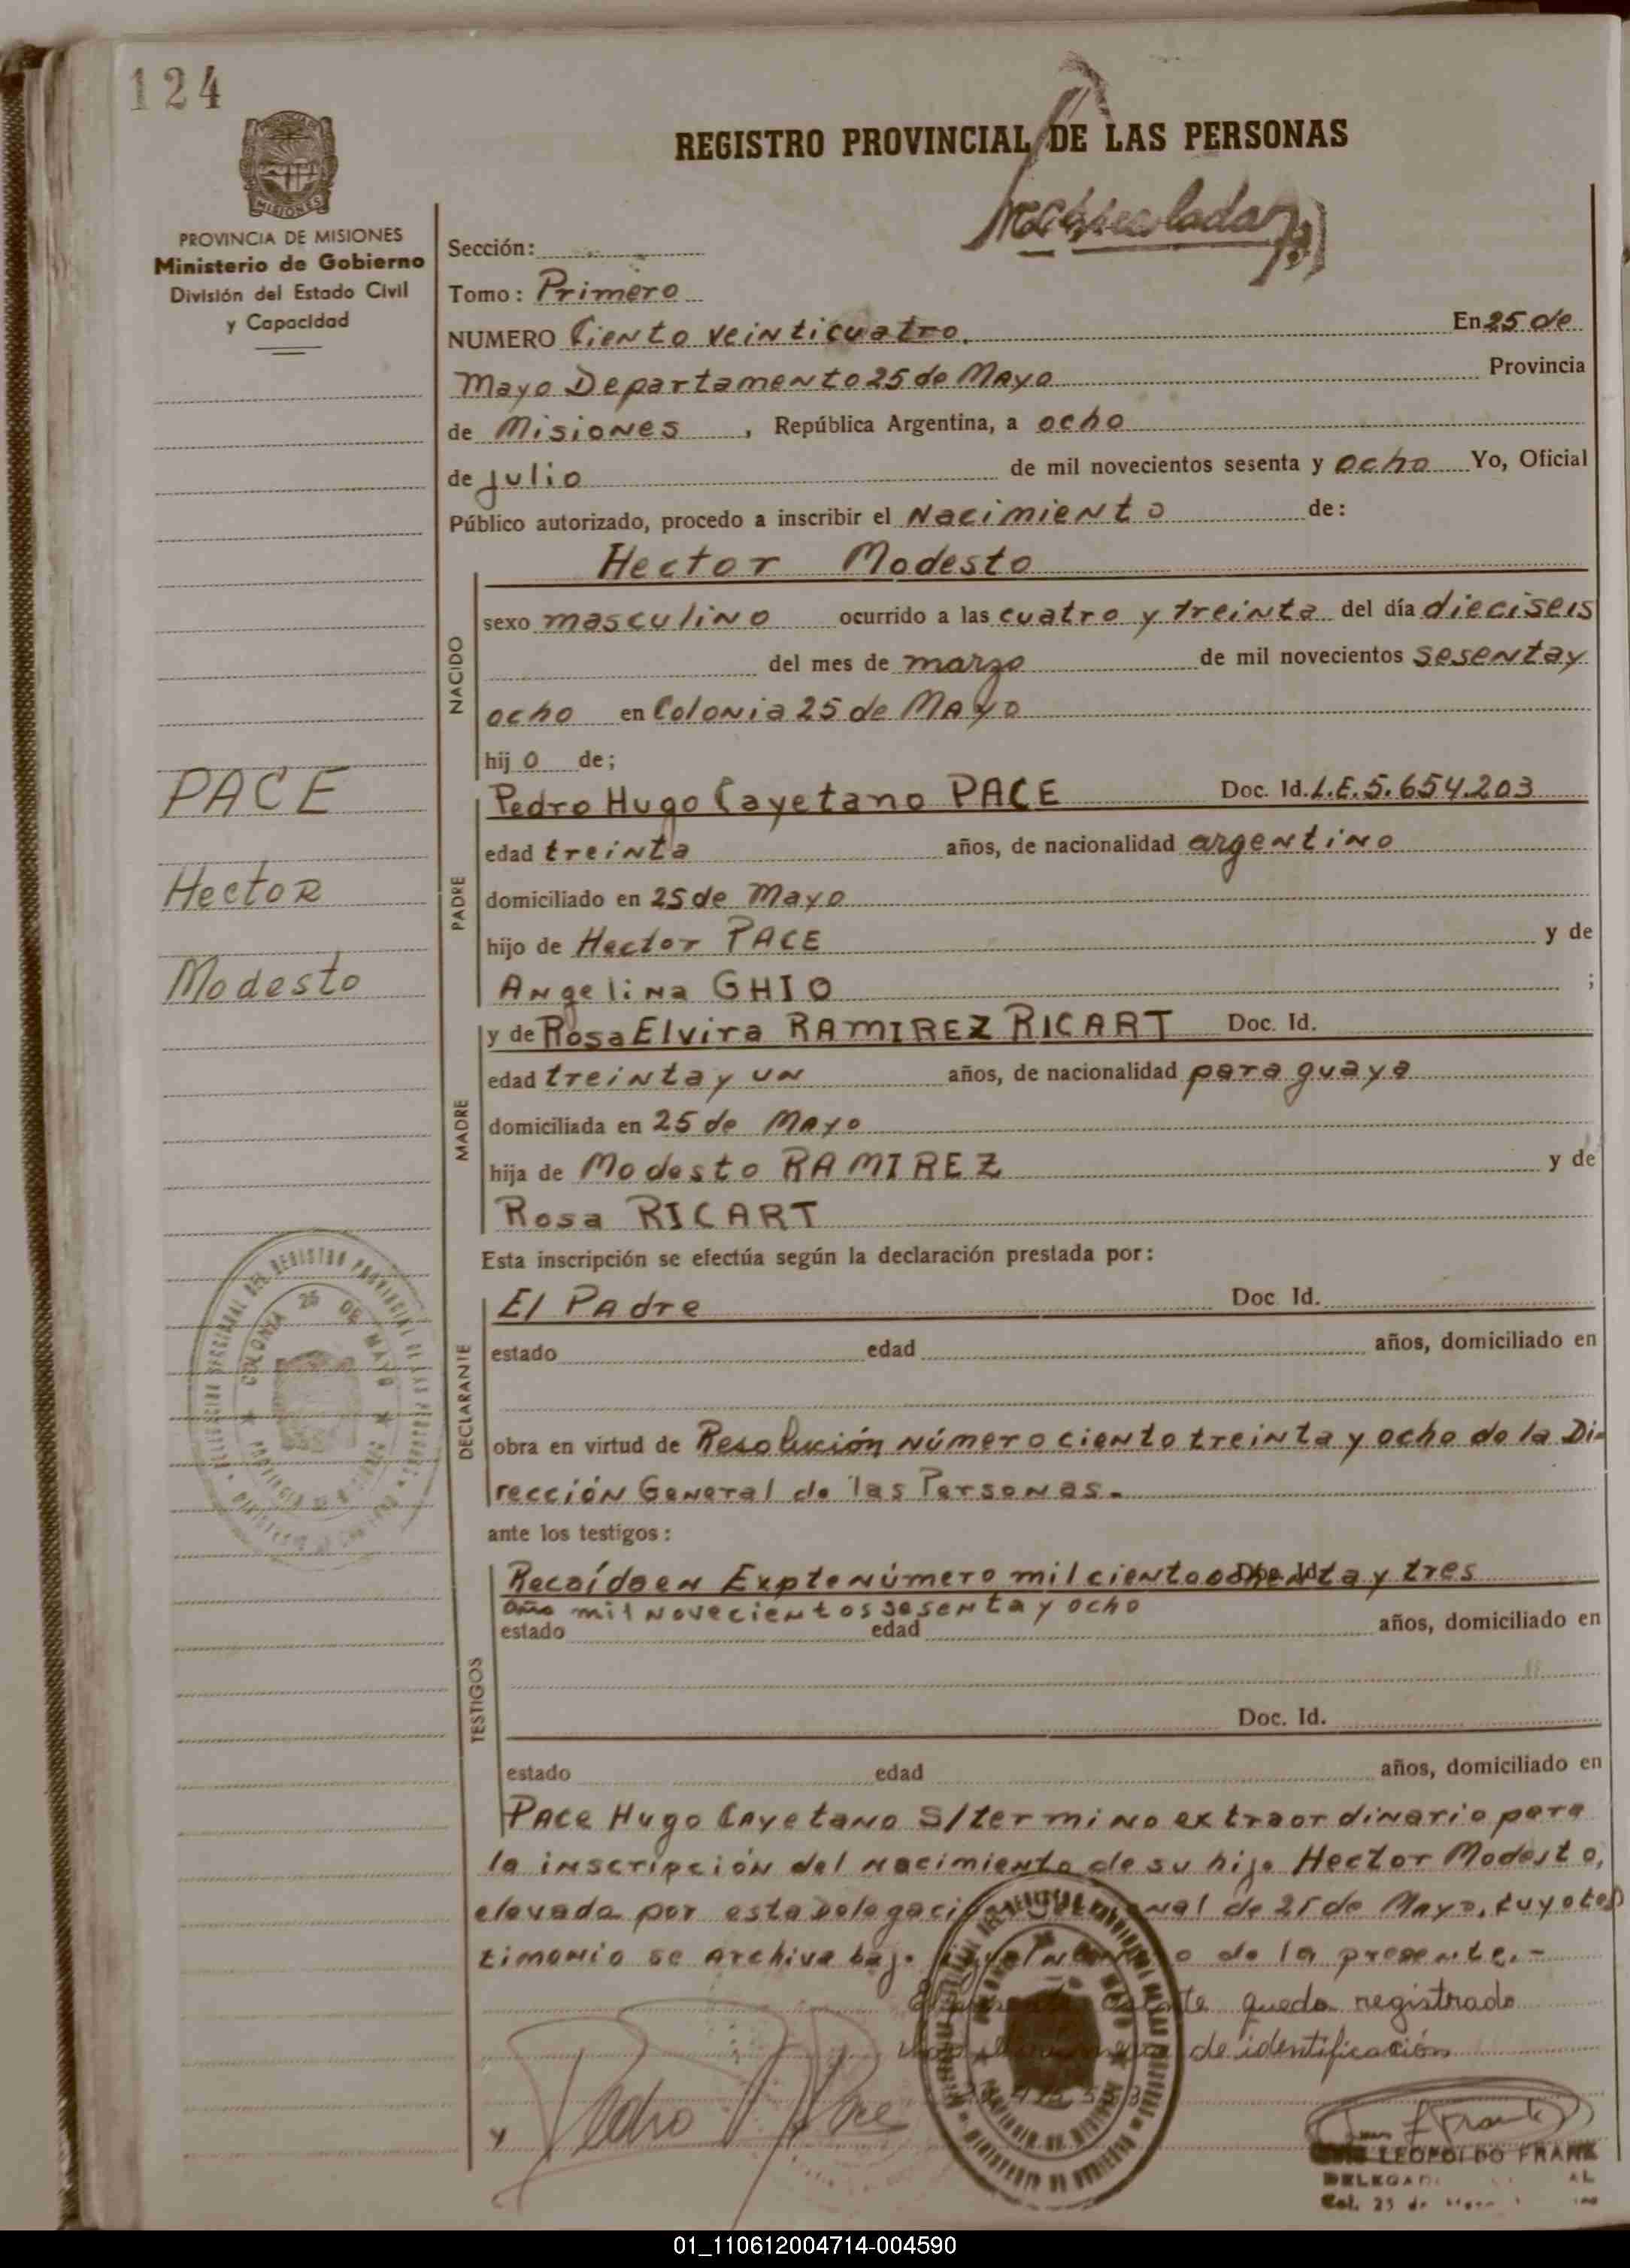 124
REGISTRO PROVINCIAL DE LAS PERSONAS
MISIONES
PROVINCIA DE MISIONES
Ministerio de Gobierno
División del Estado Civil
y Capacidad
Sección:
Tomo: Primero
NUMERO Ciento veinticuatro. En 25 de
Mayo Departamento 25 de Mayo Provincia
de Misiones, República Argentina, a ocho
de julio de mil novecientos sesenta y ocho Yo, Oficial
Público autorizado, procedo a inscribir el Nacimiento de:
Hector Modesto
NACIDO
sexo masculino ocurrido a las cuatro y treinta del día dieciseis
del mes de marzo de mil novecientos sesenta y
ocho en Colonia 25 de Mayo
hij o de;
PACE
Hector
Modesto
PADRE
Pedro Hugo Cayetano PACE Doc. Id. L.E. 5.654.203
edad treinta años, de nacionalidad argentino
domiciliado en 25 de Mayo
hijo de Hector PACE y de
Angelina GHIO ;
MADRE
y de Rosa Elvira RAMIREZ RICART Doc. Id.
edad treinta y un años, de nacionalidad paraguaya
domiciliada en 25 de Mayo
hija de Modesto RAMIREZ y de
Rosa RICART
Esta inscripción se efectúa según la declaración prestada por:
DECLARANTE
El Padre Doc. Id.
estado edad años, domiciliado en
obra en virtud de Resolución número ciento treinta y ocho de la Di-
rección General de las Personas.
ante los testigos:
TESTIGOS
Recaída en Expte número mil ciento ochenta y tres
año mil novecientos sesenta y ocho
estado edad años, domiciliado en
Doc. Id.
estado edad años, domiciliado en
Pace Hugo Cayetano S/termino extraordinario para
la inscripción del nacimiento de su hijo Hector Modesto,
elevada por esta Delegación de 25 de Mayo, cuyo tes
timonio se archiva bajo de la presente.-
queda registrado
de identificación
y Pedro Pace
COLONIA 25 DE MAYO
LEOPOLDO FRANK
Col. 25 de Mayo
01_110612004714-004590